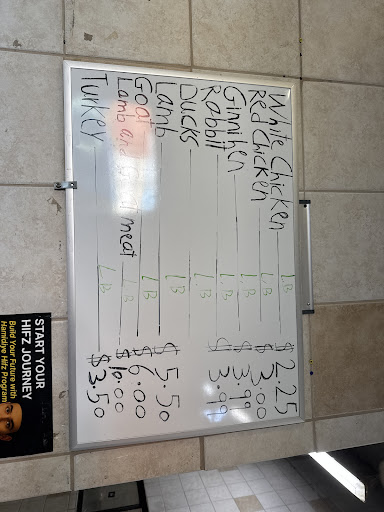 White Chicken LB $2.25
Red Chicken LB $3.00
Ginnihen LB $3.99
Rabbit LB $3.99
Ducks LB
Lamb LB $5.50
Goat LB $6.00
Lamb and meat LB $10.00
Turkey LB $3.50
START YOUR
HIFZ JOURNEY
Build Your Future with
Hamidiye Hifz Program